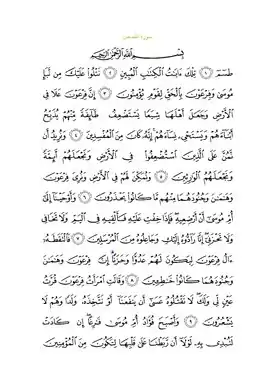 سورة القصص
بِسْمِ ٱللَّهِ ٱلرَّحْمَٰنِ ٱلرَّحِيمِ
طسٓمٓ ١ تِلْكَ ءَايَٰتُ ٱلْكِتَٰبِ ٱلْمُبِينِ ٢ نَتْلُوا۟ عَلَيْكَ مِن نَّبَإِ
مُوسَىٰ وَفِرْعَوْنَ بِٱلْحَقِّ لِقَوْمٍ يُؤْمِنُونَ ٣ إِنَّ فِرْعَوْنَ عَلَا فِى
ٱلْأَرْضِ وَجَعَلَ أَهْلَهَا شِيَعًا يَسْتَضْعِفُ طَآئِفَةً مِّنْهُمْ يُذَبِّحُ
أَبْنَآءَهُمْ وَيَسْتَحْىِۦ نِسَآءَهُمْ إِنَّهُۥ كَانَ مِنَ ٱلْمُفْسِدِينَ ٤ وَنُرِيدُ أَن
نَّمُنَّ عَلَى ٱلَّذِينَ ٱسْتُضْعِفُوا۟ فِى ٱلْأَرْضِ وَنَجْعَلَهُمْ أَئِمَّةً
وَنَجْعَلَهُمُ ٱلْوَٰرِثِينَ ٥ وَنُمَكِّنَ لَهُمْ فِى ٱلْأَرْضِ وَنُرِىَ فِرْعَوْنَ
وَهَٰمَٰنَ وَجُنُودَهُمَا مِنْهُم مَّا كَانُوا۟ يَحْذَرُونَ ٦ وَأَوْحَيْنَآ إِلَىٰٓ
أُمِّ مُوسَىٰٓ أَنْ أَرْضِعِيهِ فَإِذَا خِفْتِ عَلَيْهِ فَأَلْقِيهِ فِى ٱلْيَمِّ وَلَا تَخَافِى
وَلَا تَحْزَنِىٓ إِنَّا رَآدُّوهُ إِلَيْكِ وَجَاعِلُوهُ مِنَ ٱلْمُرْسَلِينَ ٧ فَٱلْتَقَطَهُۥٓ
ءَالُ فِرْعَوْنَ لِيَكُونَ لَهُمْ عَدُوًّا وَحَزَنًا إِنَّ فِرْعَوْنَ وَهَٰمَٰنَ
وَجُنُودَهُمَا كَانُوا۟ خَٰطِـِٔينَ ٨ وَقَالَتِ ٱمْرَأَتُ فِرْعَوْنَ قُرَّتُ
عَيْنٍ لِّى وَلَكَ لَا تَقْتُلُوهُ عَسَىٰٓ أَن يَنفَعَنَآ أَوْ نَتَّخِذَهُۥ وَلَدًا وَهُمْ لَا
يَشْعُرُونَ ٩ وَأَصْبَحَ فُؤَادُ أُمِّ مُوسَىٰ فَٰرِغًا إِن كَادَتْ
لَتُبْدِى بِهِۦ لَوْلَآ أَن رَّبَطْنَا عَلَىٰ قَلْبِهَا لِتَكُونَ مِنَ ٱلْمُؤْمِنِينَ